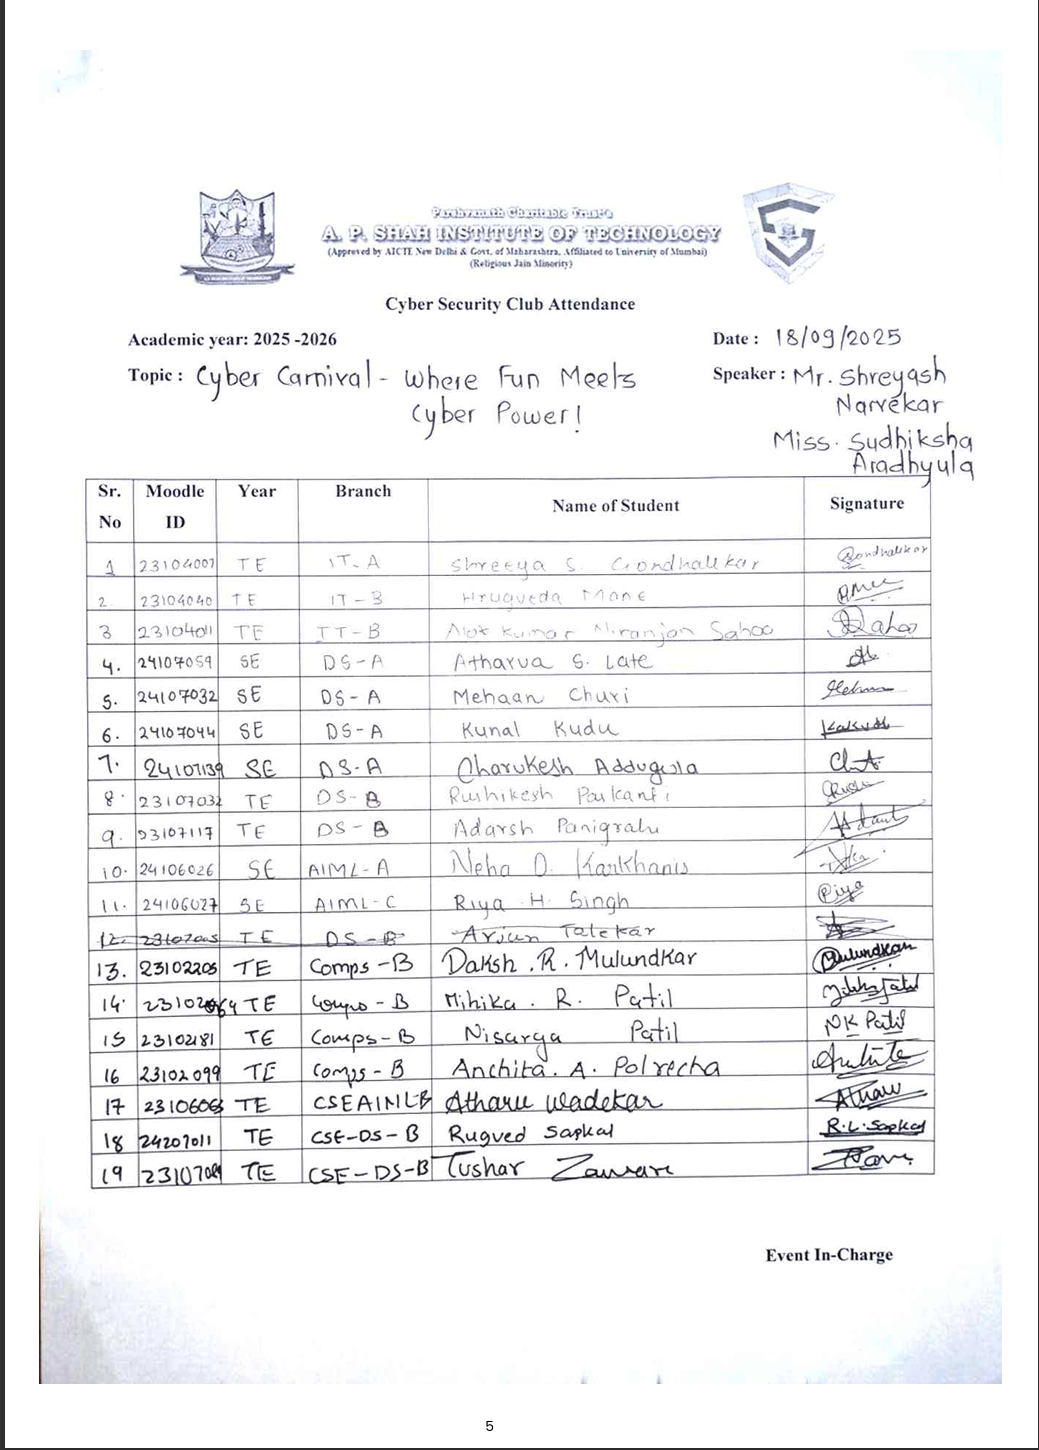 Parshvanath Charitable Trust's
A. P. SHAH INSTITUTE OF TECHNOLOGY
(Approved by AICTE New Delhi & Govt. of Maharashtra, Affiliated to University of Mumbai)
(Religious Jain Minority)
Cyber Security Club Attendance
Academic year: 2025 -2026 Date : 18/09/2025
Topic : Cyber Carnival - Where Fun Meets Cyber Power! Speaker : Mr. Shreyash Narvekar
Miss. Sudhiksha Aradhyula
Sr. No Moodle ID Year Branch Name of Student Signature
1 23104007 TE IT-A Shreeya S. Gondhalikar Gondhalikar
2. 23104040 TE IT-B Hrugveda Mane
3 23104011 TE IT-B Alok Kumar Niranjan Sahoo Sahoo
4. 24107059 SE DS-A Atharva S. Late
5. 24107032 SE DS-A Mehaan Churi
6. 24107044 SE DS-A Kunal Kudu
7. 24107139 SE DS-A Charukesh Addugula
8. 23107032 TE DS-B Rushikesh
9. 23107117 TE DS-B Adarsh Panigrahi
10. 24106026 SE AIML-A Neha D. Karkhanis
11. 24106027 SE AIML-C Riya H. Singh Riya
12. 23107005 TE DS-B Arjun Talekar
13. 23102205 TE Comps-B Daksh .R. Mulundkar Mulundkar
14. TE Comps-B Mihika . R. Patil
15 23102181 TE Comps-B Nisarga Patil NK Patil
16 23102099 TE Comps-B Anchita. A. Polrecha
17 TE CSEAIMLB Atharv Wadekar Atharv
18 24207011 TE CSE-DS-B Rugved Sapkal R.L.Sapkal
19 TE CSE-DS-B Tushar Zaware
Event In-Charge
5